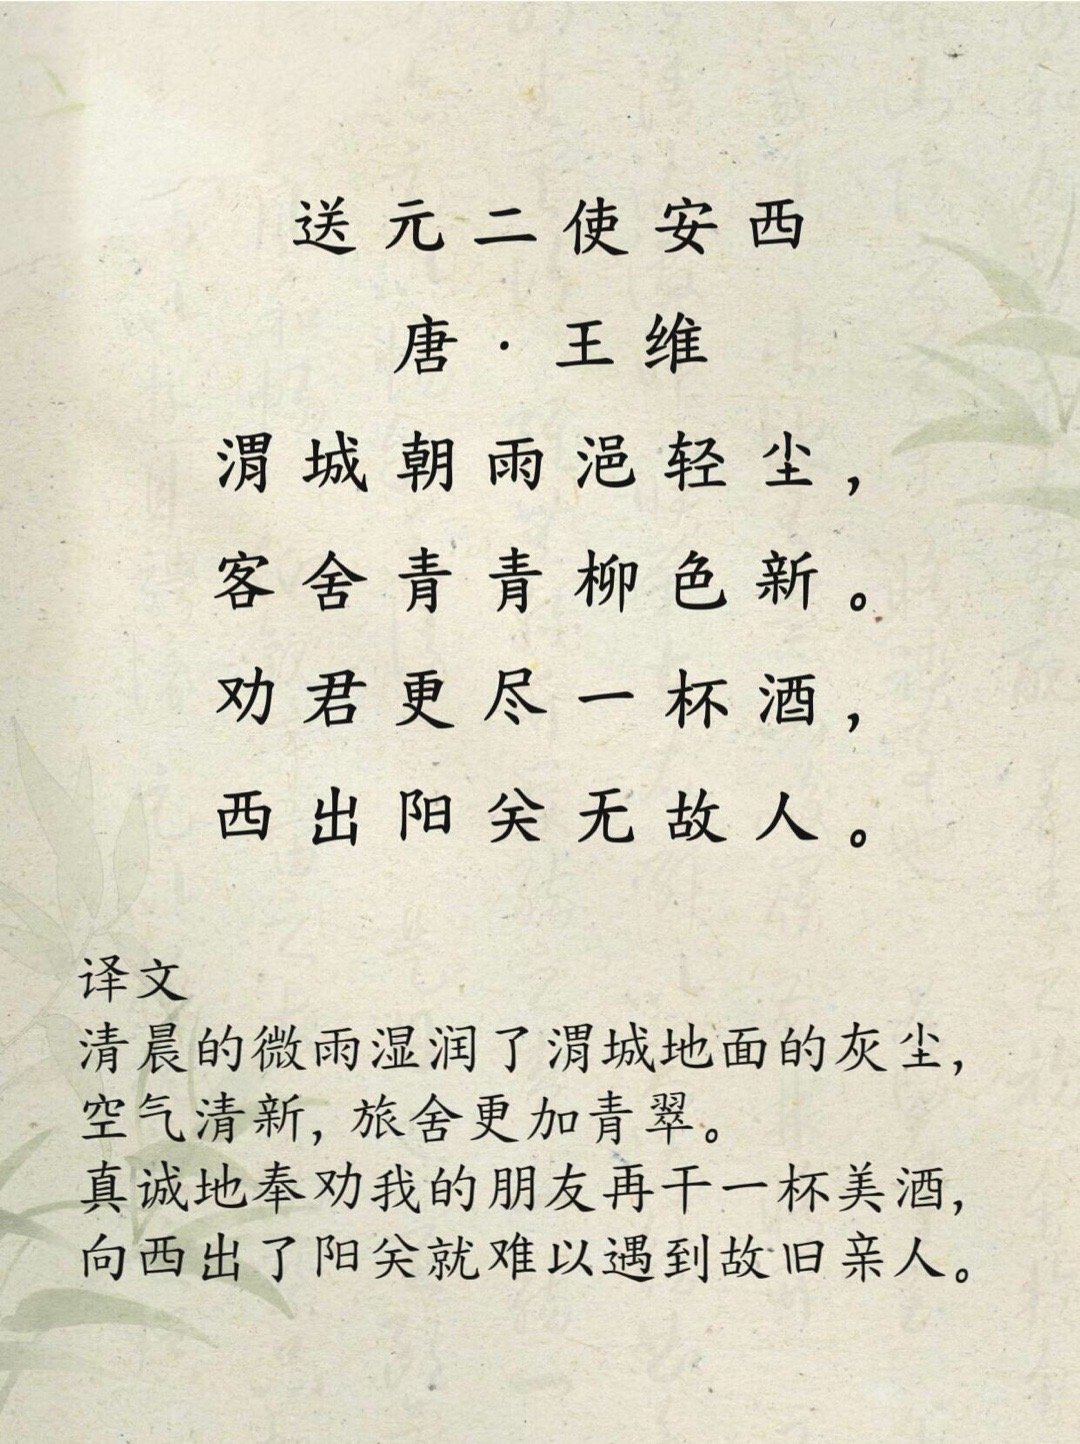 送元二使安西
唐·王维
渭城朝雨浥轻尘，
客舍青青柳色新。
劝君更尽一杯酒，
西出阳关无故人。
译文
清晨的微雨湿润了渭城地面的灰尘，
空气清新，旅舍更加青翠。
真诚地奉劝我的朋友再干一杯美酒，
向西出了阳关就难以遇到故旧亲人。